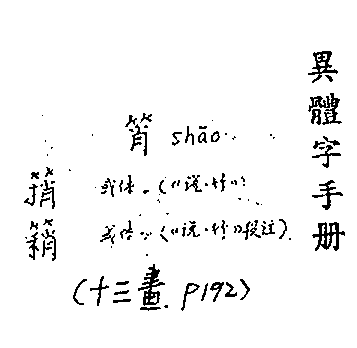 異體字手册
筲 shāo
䈰 或体.(《说·竹》)
䈾 或体.(《说·竹》段注)
(十三畫. P192)